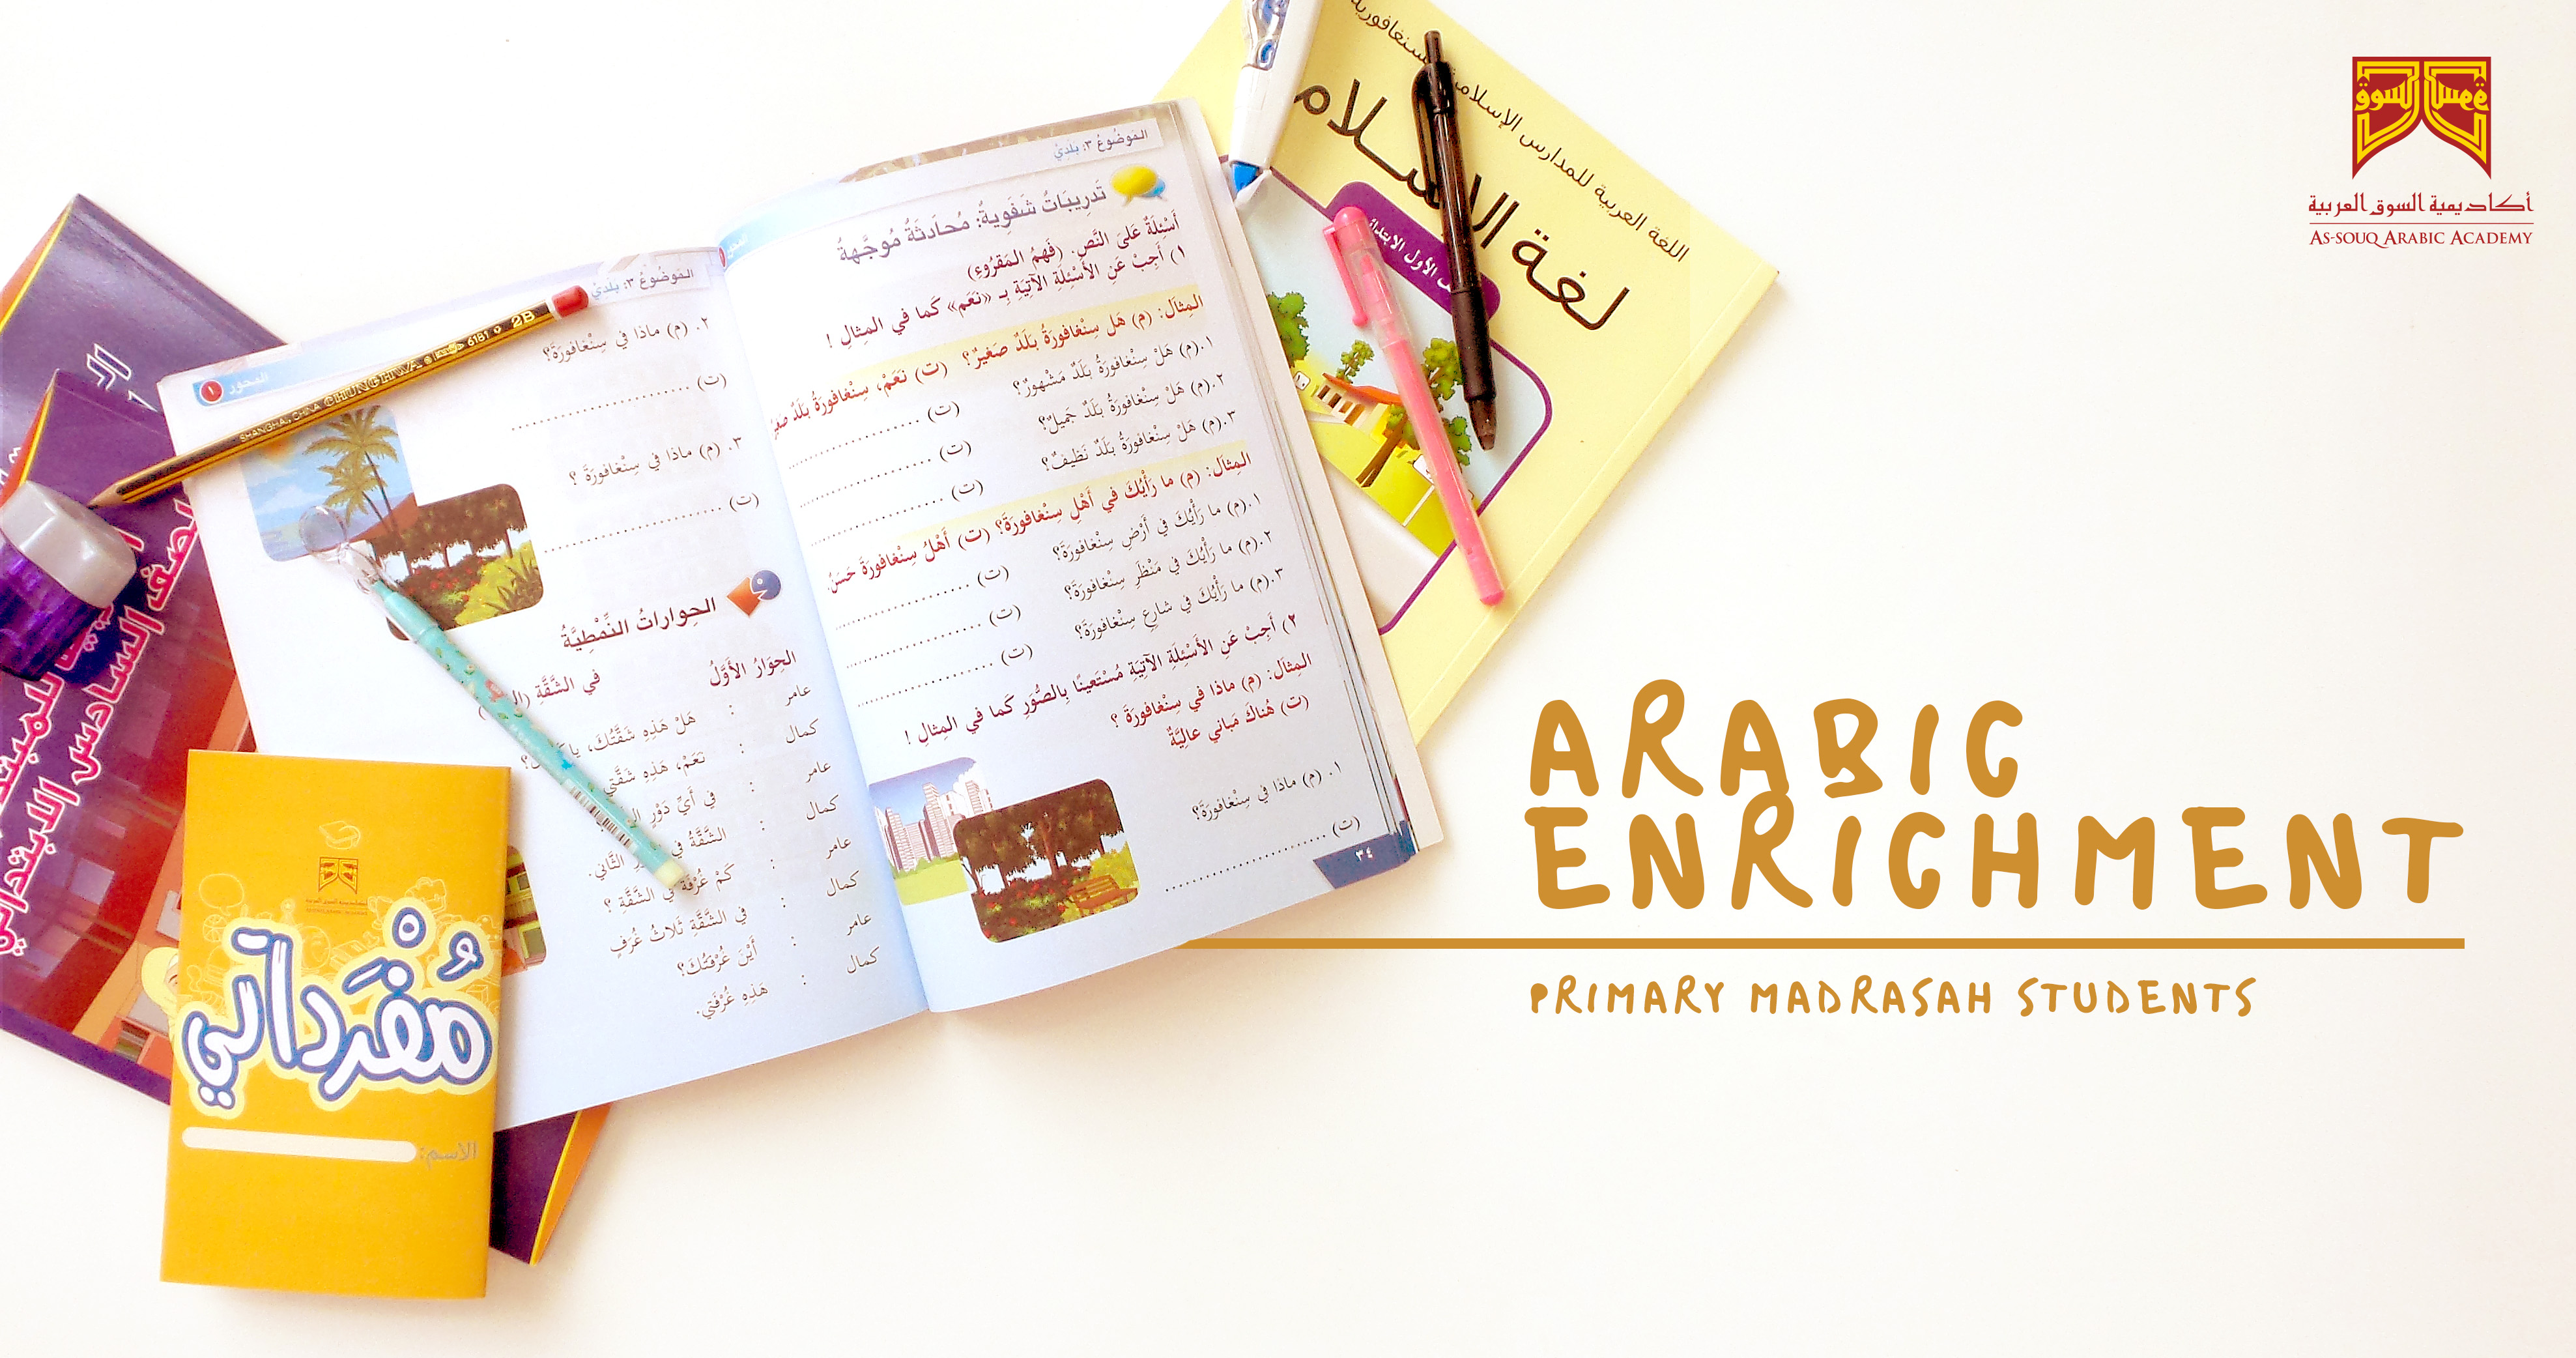 أكاديمية السوق العربية
AS-SOUQ ARABIC ACADEMY
ARABIC
ENRICHMENT
PRIMARY MADRASAH STUDENTS
اللغة العربية للمدارس الإسلامية
لغة الإسلام
الأول الابتدائي
المَوْضُوعُ ٣: بَلَدِيْ
تَدرِيبَاتٌ شَفَوِيةٌ: مُحَادَثَةٌ مُوَجَّهةٌ
أَسْئِلَةٌ عَلىَ النَّصِ. (فَهمُ المَقرُوءِ)
١) أَجِبْ عَنِ الأَسْئِلَةِ الآتِيَةِ بِـ «نَعَم» كَما في المِثالِ !
المِثاَل: (م) هَل سِنْغافورَةُ بَلَدٌ صَغيرٌ؟ (ت) نَعَمْ، سِنْغافورَةُ بَلَدٌ
١.(م) هَلْ سِنْغافورَةُ بَلَدٌ مَشْهورٌ؟ (ت)
٢.(م) هَلْ سِنْغافورَةُ بَلَدٌ جَميلٌ؟ (ت)
٣.(م) هَلْ سِنْغافورَةُ بَلَدٌ نَظيفٌ؟ (ت)
المِثاَل: (م) ما رَأْيُكَ في أَهْلِ سِنْغافورَةَ؟ (ت) أَهْلُ سِنْغافورَةَ حَسَنٌ.
١.(م) ما رَأْيُكَ في أَرْضِ سِنْغافورَةَ؟ (ت)
٢.(م) ما رَأْيُكَ في مَنْظَرِ سِنْغافورَةَ؟ (ت)
٣.(م) ما رَأْيُكَ في شارِعِ سِنْغافورَةَ؟ (ت)
٢) أَجِبْ عَنِ الأَسْئِلَةِ الآتِيَةِ مُسْتَعينًا بِالصُّوَرِ كَما في المِثالِ !
المِثاَل: (م) ماذا في سِنْغافورَةَ ؟
(ت) هُناكَ مَباني عالِيَّةٌ
١. (م) ماذا في سِنْغافورَةَ؟
(ت)
٣٤
المَوْضُوعُ ٣: بَلَدِيْ
المحور ١
٢. (م) ماذا في سِنْغافورَةَ؟
(ت)
٣. (م) ماذا في سِنْغافورَةَ ؟
(ت)
الحِوَاراتُ النَّمْطِيَّةُ
الحِوَارُ الأَوَّلُ في الشَّقَّةِ
عامر : هَلْ هَذِهِ شَقَّتُكَ، يا
كمال : نَعَمْ، هَذِهِ شَقَّتي
عامر : في أَيِّ دَوْرٍ
كمال : الشَّقَّةُ في الثَّاني.
عامر : كَمْ غُرْفَةً في الشَّقَّةِ ؟
كمال : في الشَّقَّةِ ثَلاثُ غُرَفٍ
عامر : أَيْنَ غُرْفَتُكَ؟
كمال : هَذِهِ غُرْفَتي.
SHANGHAI, CHINA CHUNGHWA 6181 2B
الصف السادس الابتدائي
مُفْرَدَاتي
الاسم: